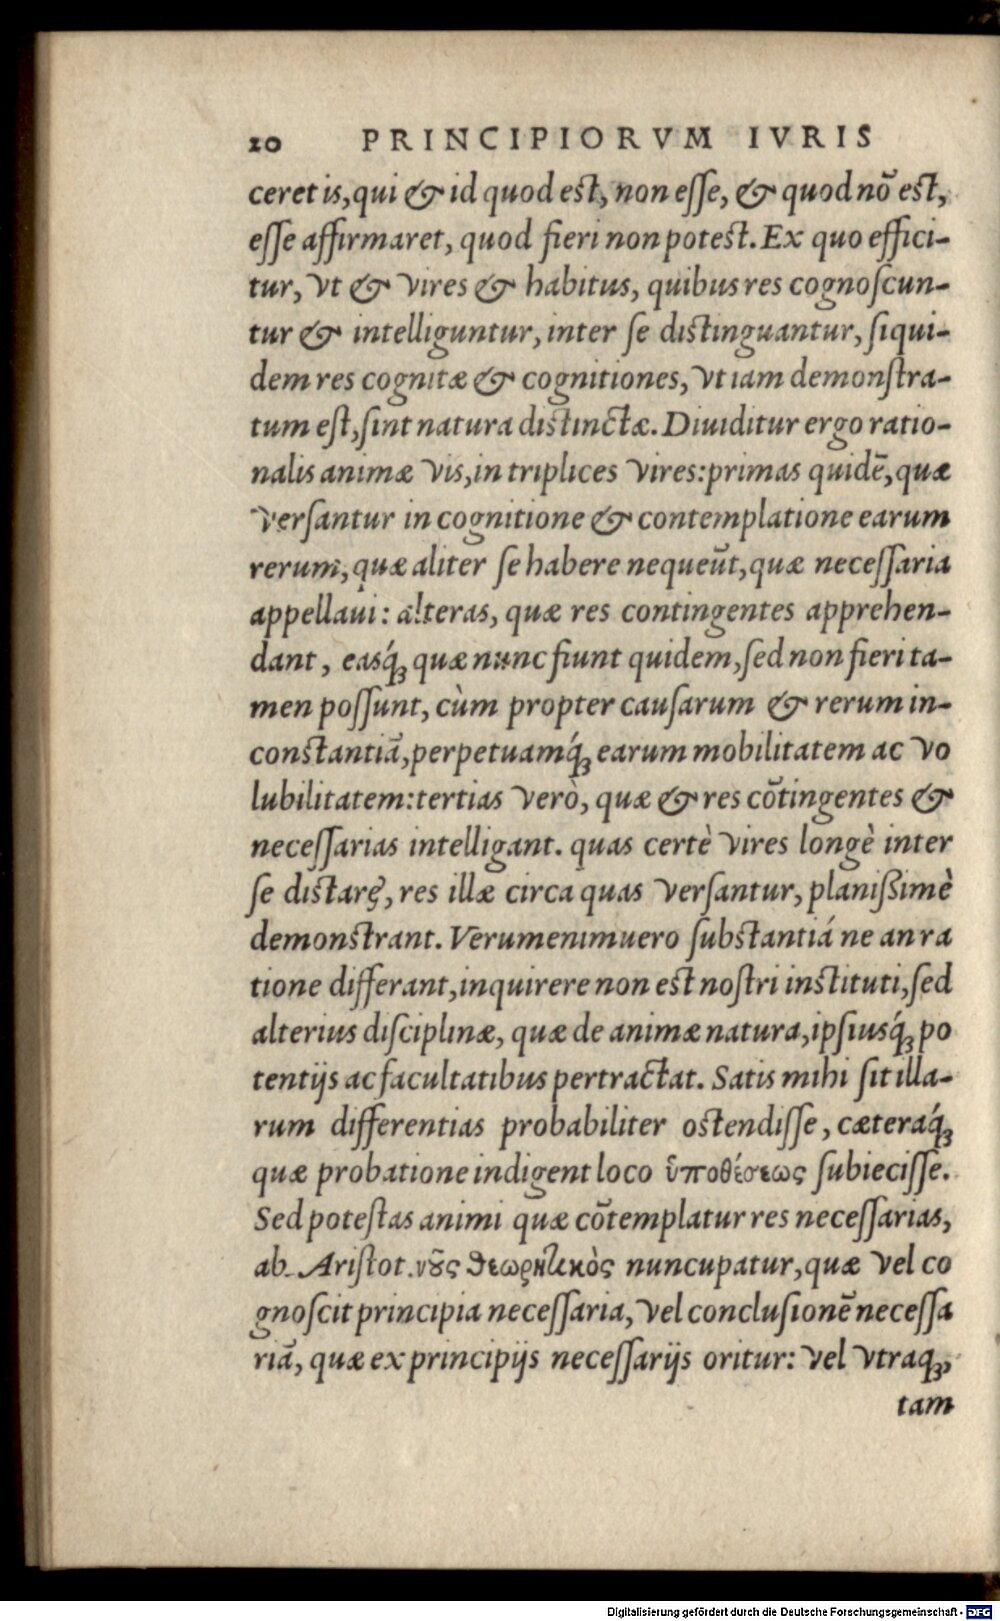 20 PRINCIPIORVM IVRIS
ceret is, qui & id quod est, non esse, & quod nō est,
esse affirmaret, quod fieri non potest. Ex quo effici-
tur, vt & vires & habitus, quibus res cognoscun-
tur & intelliguntur, inter se distinguantur, siqui-
dem res cognitæ & cognitiones, vt iam demonstra-
tum est, sint natura distinctæ. Diuiditur ergo ratio-
nalis animæ vis, in triplices vires: primas quidē, quæ
versantur in cognitione & contemplatione earum
rerum, quæ aliter se habere nequeūt, quæ necessaria
appellaui: alteras, quæ res contingentes apprehen-
dant, easq́ꝫ quæ nunc fiunt quidem, sed non fieri ta-
men possunt, cùm propter causarum & rerum in-
constantiā, perpetuamq́ꝫ earum mobilitatem ac vo
lubilitatem: tertias verò, quæ & res cōtingentes &
necessarias intelligant. quas certè vires longè inter
se distare, res illæ circa quas versantur, planißimè
demonstrant. Verumenimuero substantiá ne an ra
tione differant, inquirere non est nostri instituti, sed
alterius disciplinæ, quæ de animæ natura, ipsiusq́ꝫ po
tentijs ac facultatibus pertractat. Satis mihi sit illa-
rum differentias probabiliter ostendisse, cæteraq́ꝫ
quæ probatione indigent loco ὑποθέσεως subiecisse.
Sed potestas animi quæ cōtemplatur res necessarias,
ab Aristot. νοῦς θεωρητικὸς nuncupatur, quæ vel co
gnoscit principia necessaria, vel conclusionē necessa
riā, quæ ex principijs necessarijs oritur: vel vtraqꝫ,
tam
Digitalisierung gefördert durch die Deutsche Forschungsgemeinschaft - DFG